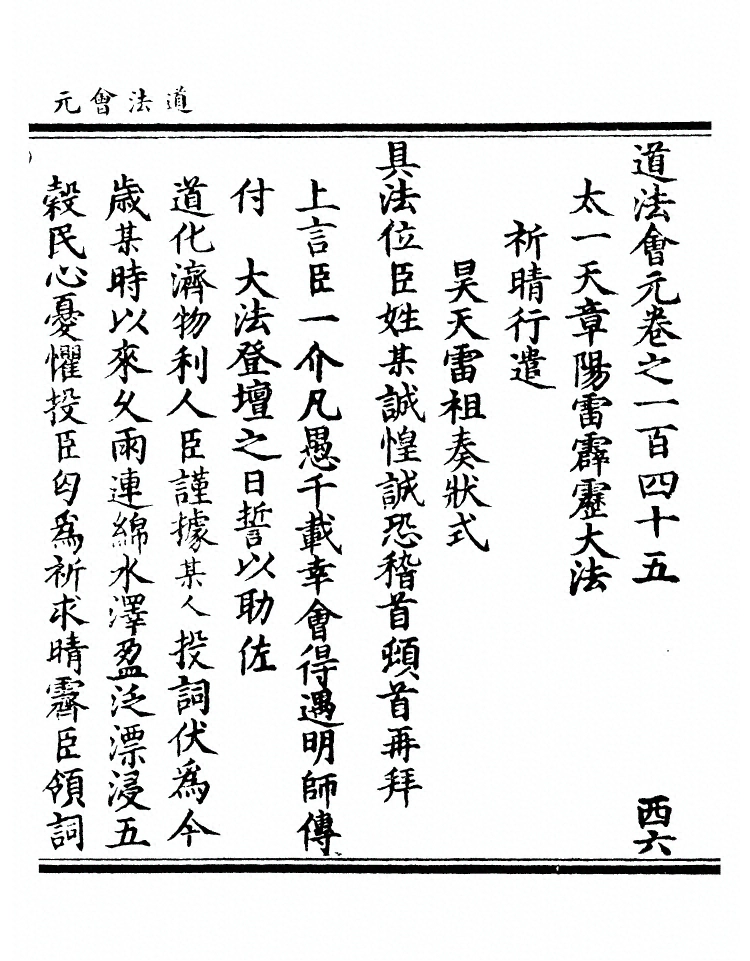 道法會元
道法會元卷之一百四十五
西六
太一天章陽雷霹靂大法
祈晴行遣
昊天雷祖奏狀式
具法位臣姓某誠惶誠恐稽首頓首再拜
上言臣一介凡愚千載幸會得遇明師傳
付　大法登壇之日誓以助佐
道化濟物利人臣謹據某人投詞伏爲今
歲某時以來久雨連綿水澤盈泛漂浸五
穀民心憂懼投臣匃爲祈求晴霽臣領詞